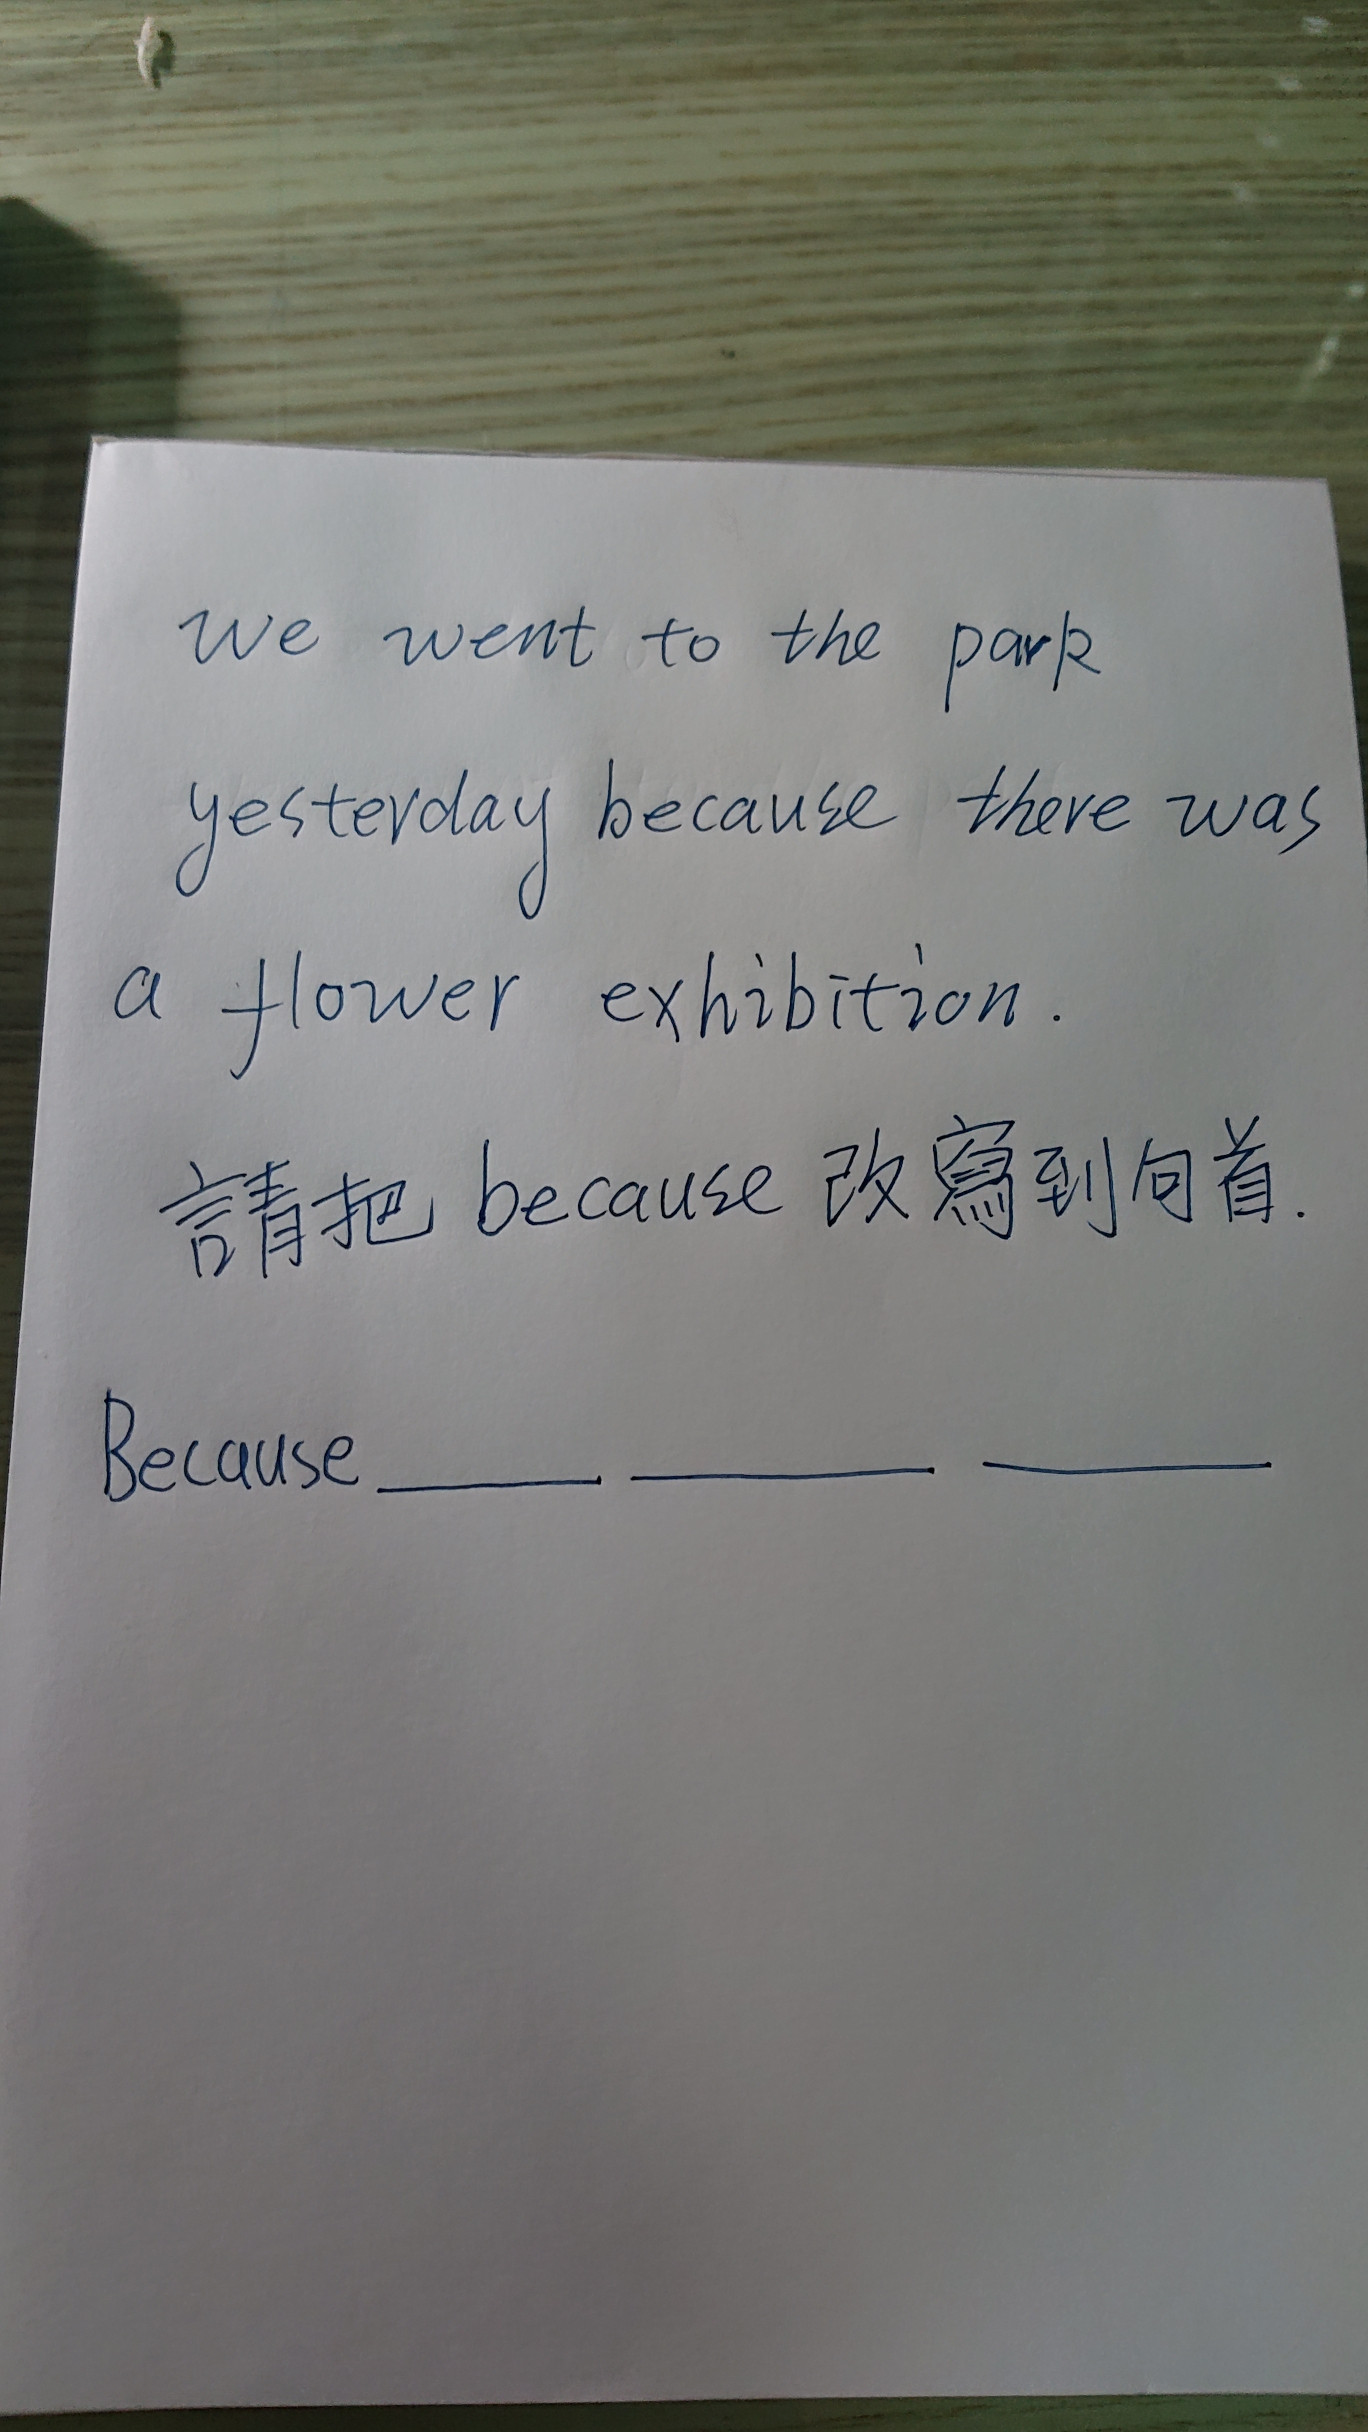 We went to the park
yesterday because there was
a flower exhibition.
請把 because 改寫到句首.
Because____ ____ ____